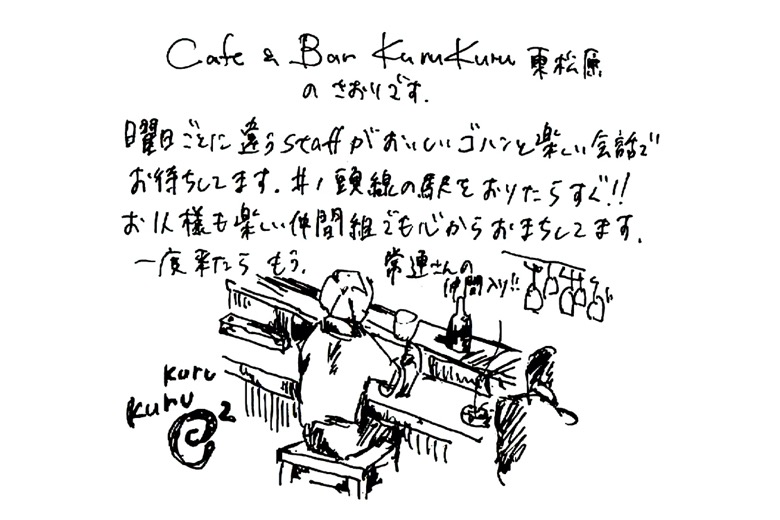 Cafe & Bar KuruKuru 東松原
のさおりです.
曜日ごとに違うstaffがおいしいゴハンと楽しい会話で
お待ちしてます. 井ノ頭線の駅をおりたらすぐ!!
お1人様も楽しい仲間組でも心からおまちしてます.
一度来たらもう.
常連さんの
仲間入り!!
kuru
kuru
c 2